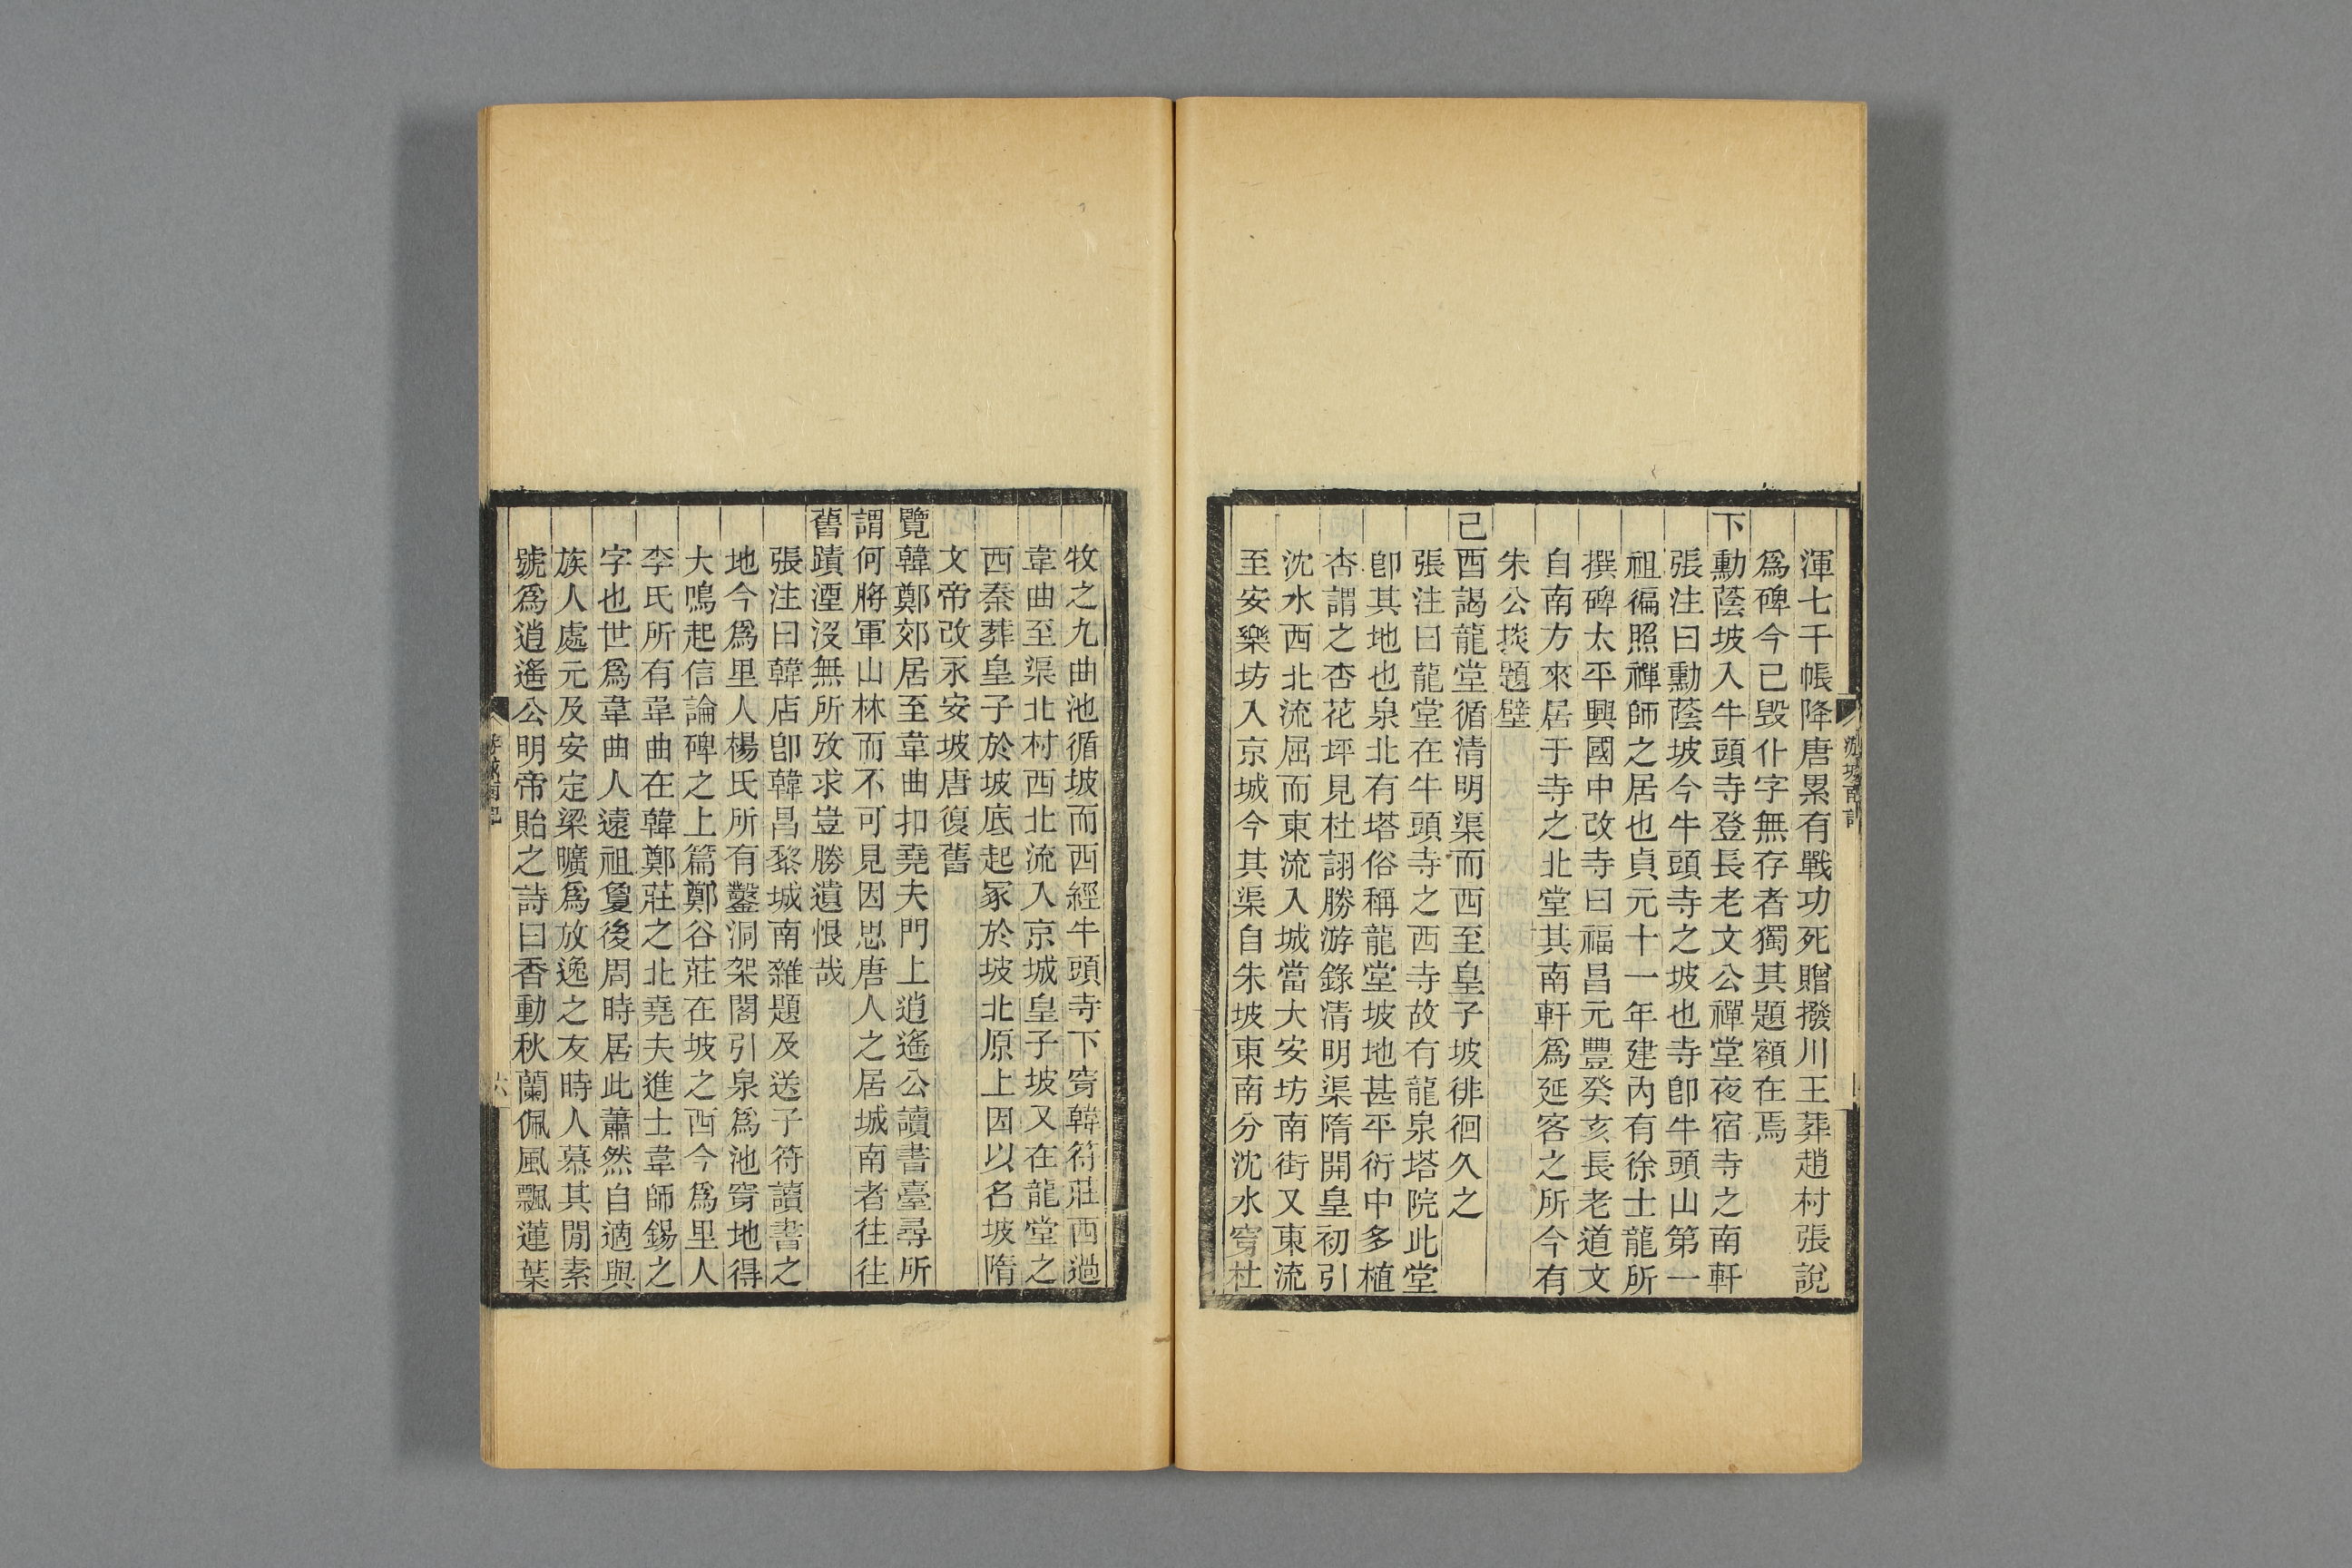 渾七千帳降唐累有戰功死贈撥川王葬趙村張說
爲碑今已毁仆字無存者獨其題額在焉
下勳蔭坡入牛頭寺登長老文公禪堂夜宿寺之南軒
張注曰勳蔭坡今牛頭寺之坡也寺卽牛頭山第一
祖徧照禪師之居也貞元十一年建內有徐士龍所
撰碑太平興國中改寺曰福昌元豐癸亥長老道文
自南方來居于寺之北堂其南軒爲延客之所今有
朱公掞題壁
己酉謁龍堂循清明渠而西至皇子坡徘徊久之
張注曰龍堂在牛頭寺之西寺故有龍泉塔院此堂
卽其地也泉北有塔俗稱龍堂坡地甚平衍中多植
杏謂之杏花坪見杜詡勝游錄清明渠隋開皇初引
沈水西北流屈而東流入城當大安坊南街又東流
至安樂坊入京城今其渠自朱坡東南分沈水穿杜
牧之九曲池循坡而西經牛頭寺下穿韓符莊西過
韋曲至渠北村西北流入京城皇子坡又在龍堂之
西秦葬皇子於坡底起冢於坡北原上因以名坡隋
文帝改永安坡唐復舊
覽韓鄭郊居至韋曲扣堯夫門上逍遙公讀書臺尋所
謂何將軍山林而不可見因思唐人之居城南者往往
舊蹟湮沒無所攷求豈勝遺恨哉
張注曰韓店卽韓昌黎城南雜題及送子符讀書之
地今爲里人楊氏所有鑿洞架閣引泉爲池穿地得
大鳴起信論碑之上篇鄭谷莊在坡之西今爲里人
李氏所有韋曲在韓鄭莊之北堯夫進士韋師錫之
字也世爲韋曲人遠祖敻後周時居此蕭然自適與
族人處元及安定梁曠爲放逸之友時人慕其閒素
號爲逍遙公明帝貽之詩曰香動秋蘭佩風飄蓮葉
游城南記
六